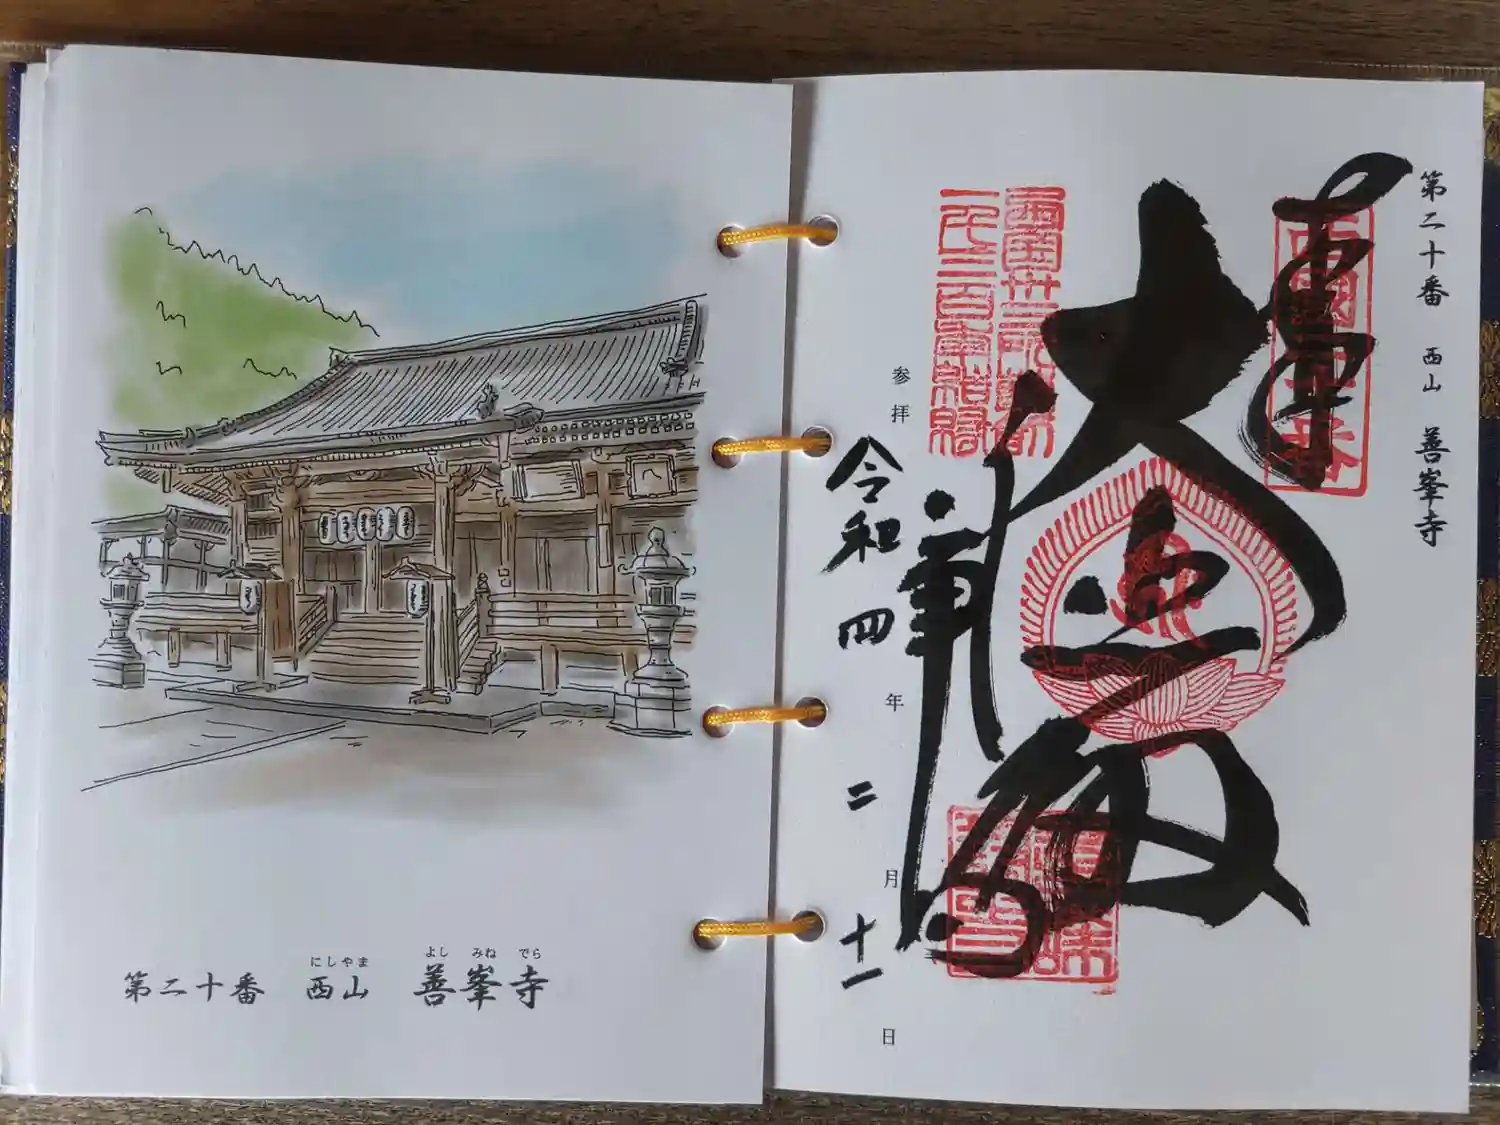 にしやま よし みね でら
第二十番 西山 善峯寺
第二十番 西山 善峯寺
奉拝
西國二十番
大悲殿
善峯寺
西國卅三所草創
一千三百年結縁
参拝 令和四年二月十一日